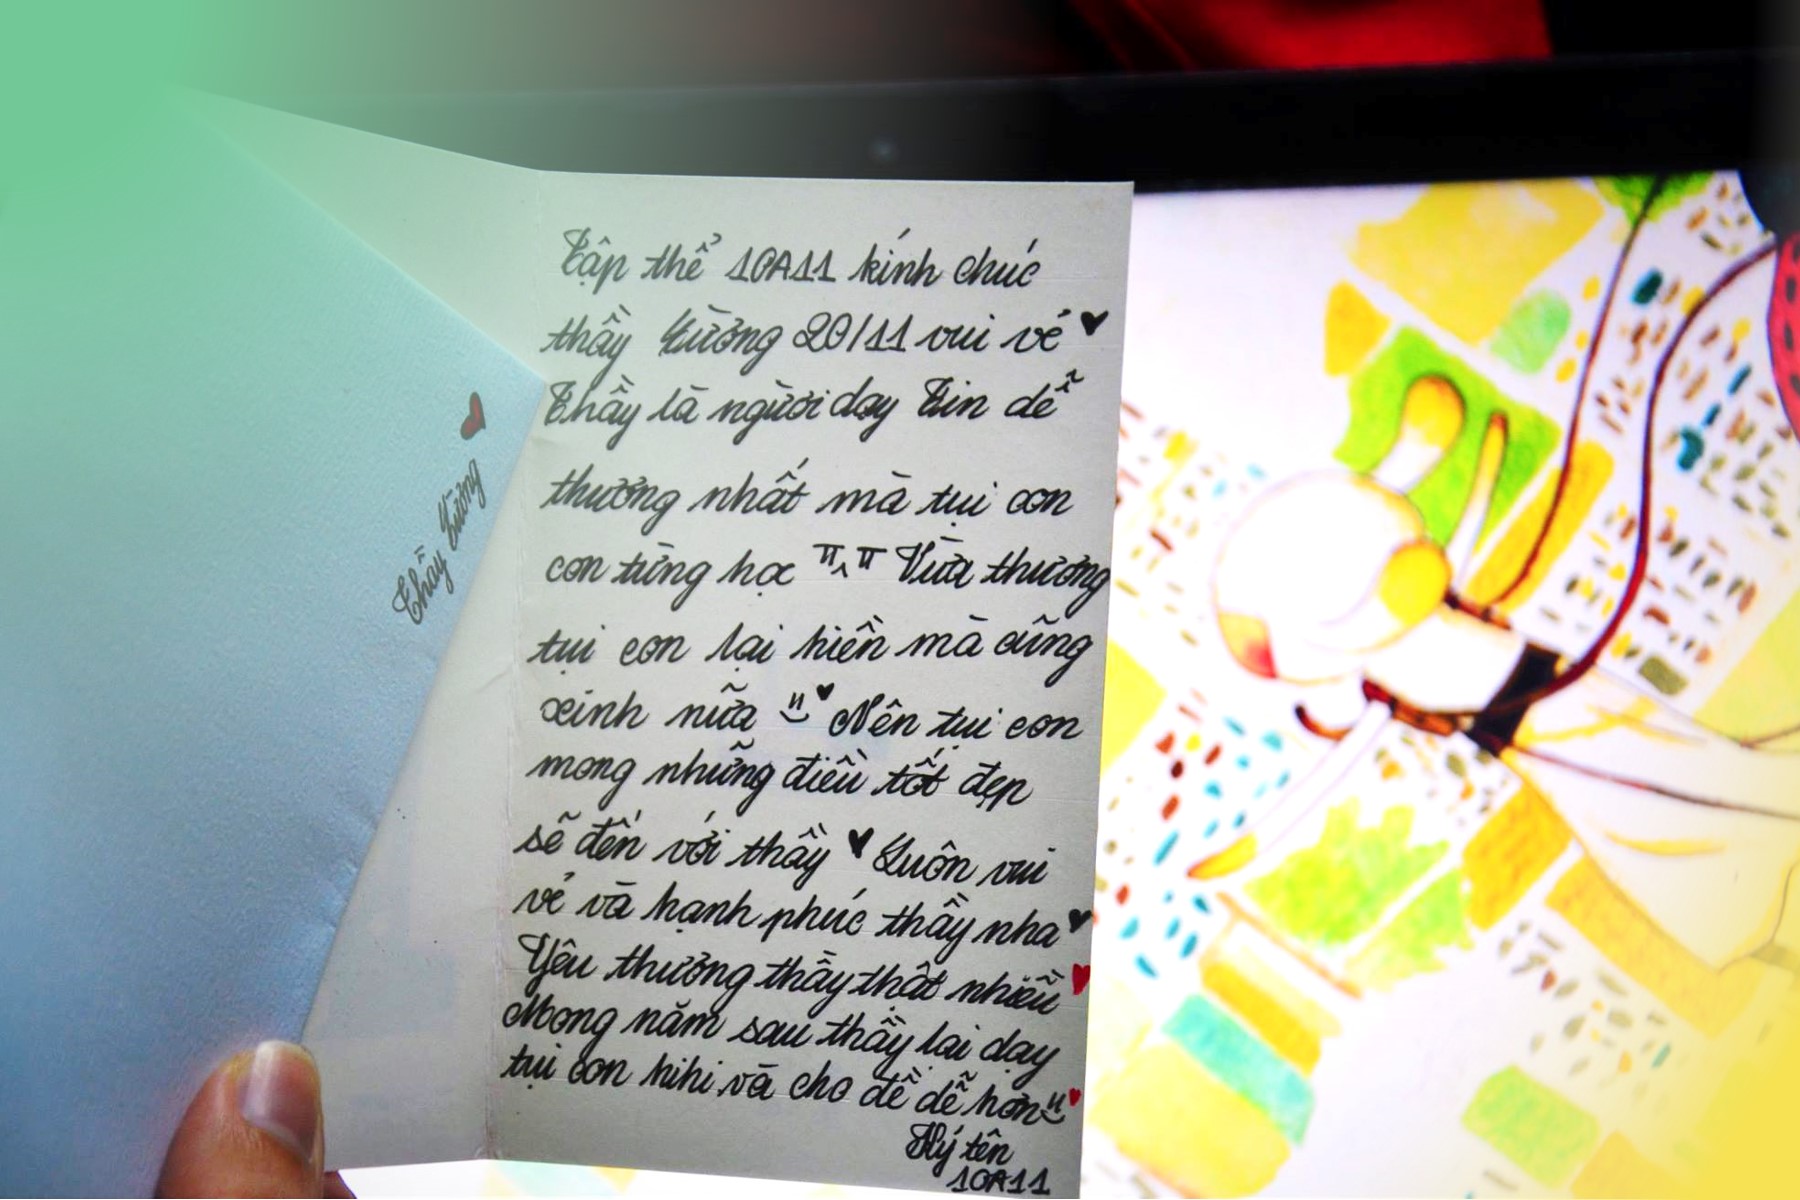 Thầy Lương
Tập thể 10A11 kính chúc
thầy Lương 20/11 vui vẻ
Thầy là người dạy Tin dễ
thương nhất mà tụi con
con từng học Vừa thương
tụi con lại hiền mà cũng
xinh nữa Nên tụi con
mong những điều tốt đẹp
sẽ đến với thầy Luôn vui
vẻ và hạnh phúc thầy nha
Yêu thương thầy thật nhiều
Mong năm sau thầy lại dạy
tụi con hihi và cho đề dễ hơn
Ký tên
10A11